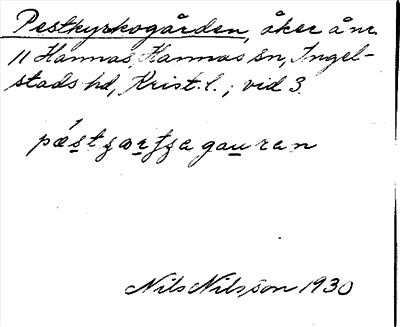 Pestkyrkogården, åker å nr
11 Hannas, Hannas sn, Ingel-
stads hd, Krist. l.; vid 3.
Nils Nilsson 1930